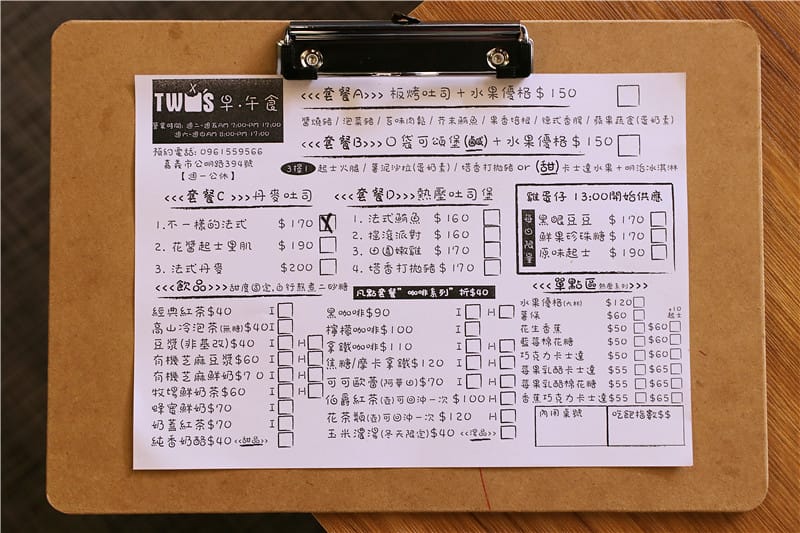 TWXS 早.午食
營業時間: 週二~週五AM 7:00-PM 17:00
週六~週日AM 8:00-PM 17:00
預約電話: 0961559566
嘉義市公明路394號
【週一公休】
<<<套餐A>>> 板烤吐司+水果優格$150
醬燒豬/泡菜豬/百味肉鬆/芥末鮪魚/果香培根/德式香腸/蘋果蔬食(蛋奶素)
<<<套餐B>>>口袋可頌堡(鹹)+水果優格$150
3擇1 起士火腿/薯泥沙拉(蛋奶素)/塔香打拋豬 or (甜)卡士達水果+明治冰淇淋
<<<套餐C>>>丹麥吐司
1.不一樣的法式 $170 X
2.花醬起士里肌 $190
3.法式丹麥 $200
<<<套餐D>>>熱壓吐司堡
1.法式鮪魚 $160
2.搖滾派對 $160
3.田園嫩雞 $170
4.塔香打拋豬$170
雞蛋仔 13:00開始供應
每日限量
黑眼豆豆 $170
鮮果珍珠糖$170
原味起士 $190
<<<飲品>>>甜度固定,由行熬煮二砂糖
經典紅茶$40 I
高山冷泡茶(無糖)$40 I
豆漿(非基改)$40 I H
有機芝麻豆漿$60 I H
有機芝麻鮮奶$70 I H
牧場鮮奶茶$60 I H
蜂蜜鮮奶$70 I
奶蓋紅茶$70 I
純香奶酪$40 <<甜品>>
凡點套餐"咖啡系列"折$40
黑咖啡$90 I H
檸檬咖啡$100 I
拿鐵咖啡$110 I H
焦糖/摩卡拿鐵$120 I H
可可歐蕾(阿華田)$70 I H
伯爵紅茶(壺)可回沖一次 $100 H
花茶類(壺)可回沖一次 $120 H
玉米濃湯(冬天限定)$40 <<湯品>>
<<<單點區 熱壓系列>>>
水果優格(大杯) $120
薯條 $60 +10起士
花生香蕉 $50 $60
藍莓棉花糖 $50 $60
巧克力卡士達 $50 $60
莓果乳酪卡士達 $55 $65
莓果乳酪棉花糖 $55 $65
香蕉巧克力卡士達$55 $65
內用桌號
吃飽指數$$